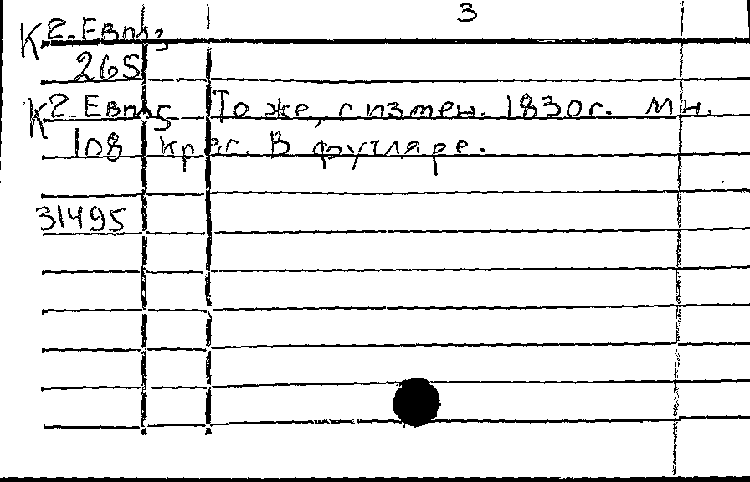 3
К 2-Евпл 3
265
К 2 Евпл 5 То же, с измен. 1830 г. Мн.
108 крас. В футляре.
31495